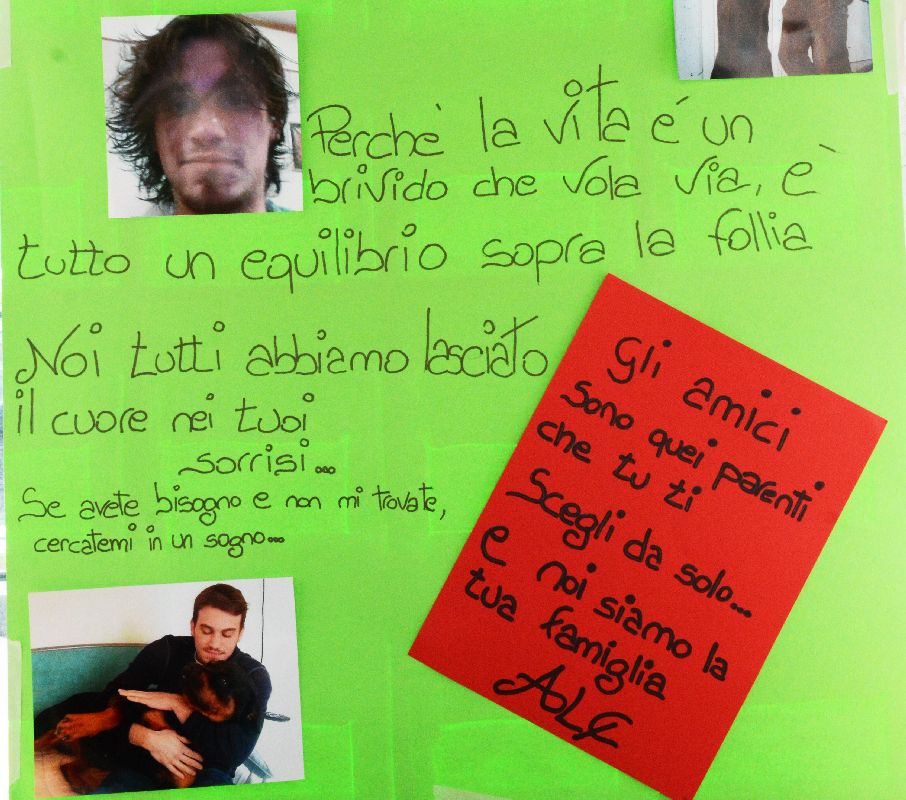 Perchè la vita é un
brivido che vola via, è
tutto un equilibrio sopra la follia
Noi tutti abbiamo lasciato
il cuore nei tuoi
sorrisi...
Se avete bisogno e non mi trovate,
cercatemi in un sogno...
Gli amici
sono quei parenti
che tu ti
Scegli da solo...
e noi siamo la
tua famiglia